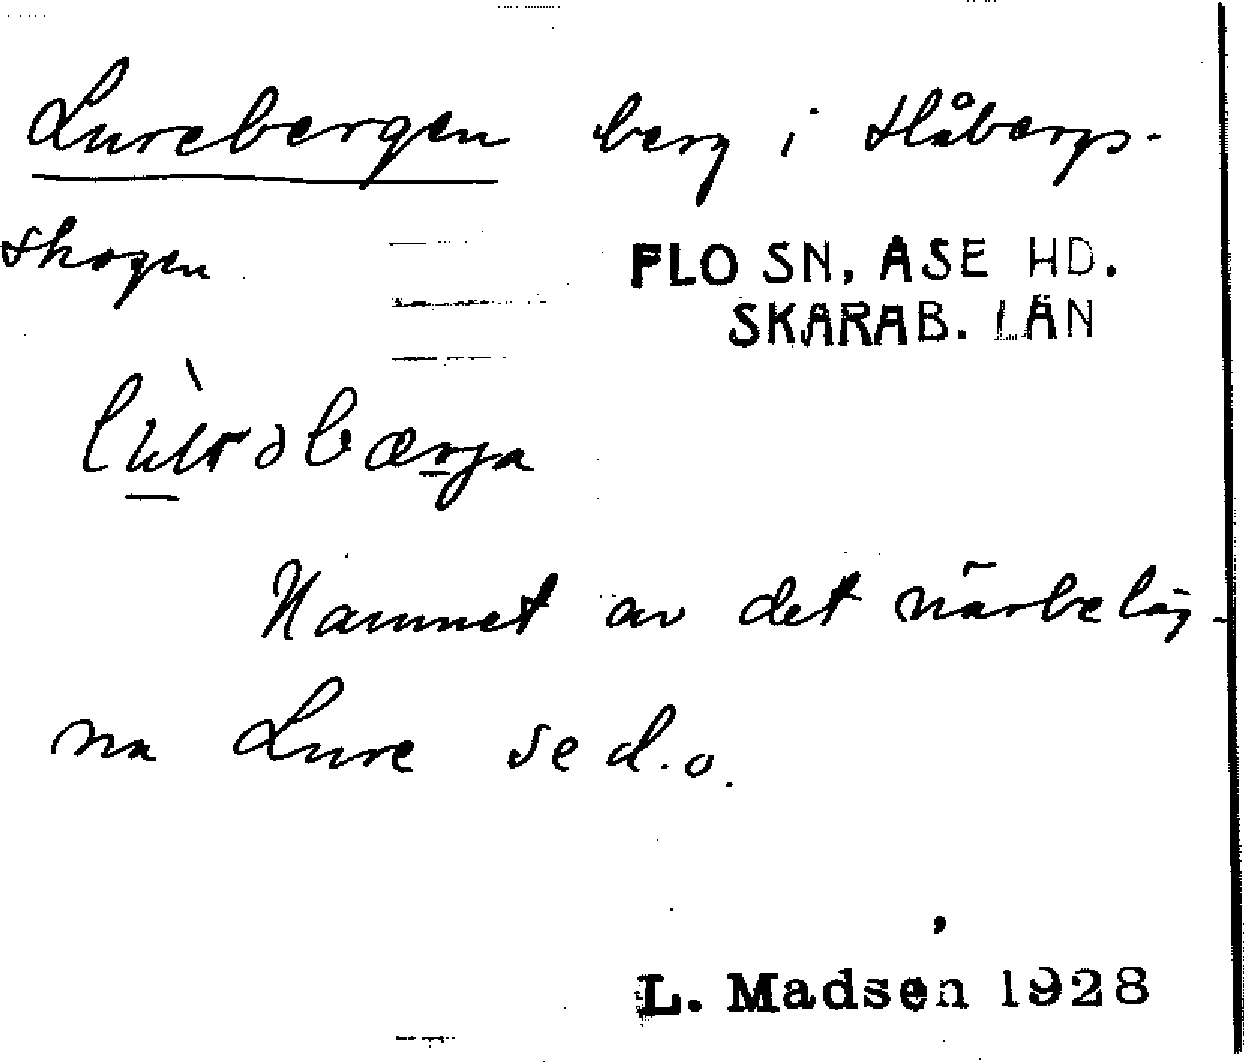 Lurebergen berg i Håbergs-
skogen
FLO SN, ASE HD.
SKARAB. LÄN
Namnet av det närbeläg-
na Lure se d.o.
L. Madsen 1928